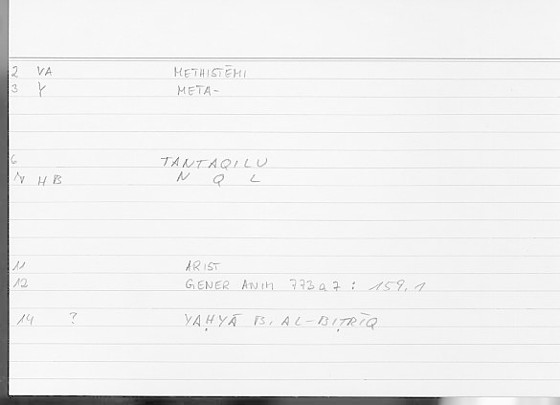 2 VA METHISTĒMI
3 Y META-
6 TANTAQILU
N HB N Q L
11 ARIST
12 GENER ANIM 773a7 : 159,1
14 ? YAḤYĀ B. AL-BIṬRĪQ